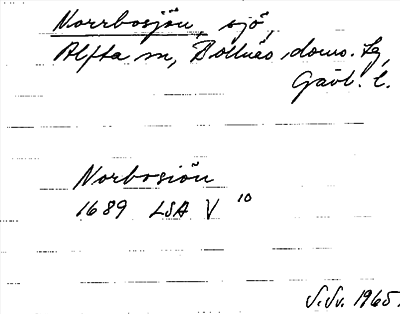 Norrbosjön, sjö,
Alfta sn, Bollnäs doms. tg,
Gävl. l.
Norbosiön
1689 LSA V 10
S.Sv. 1965.